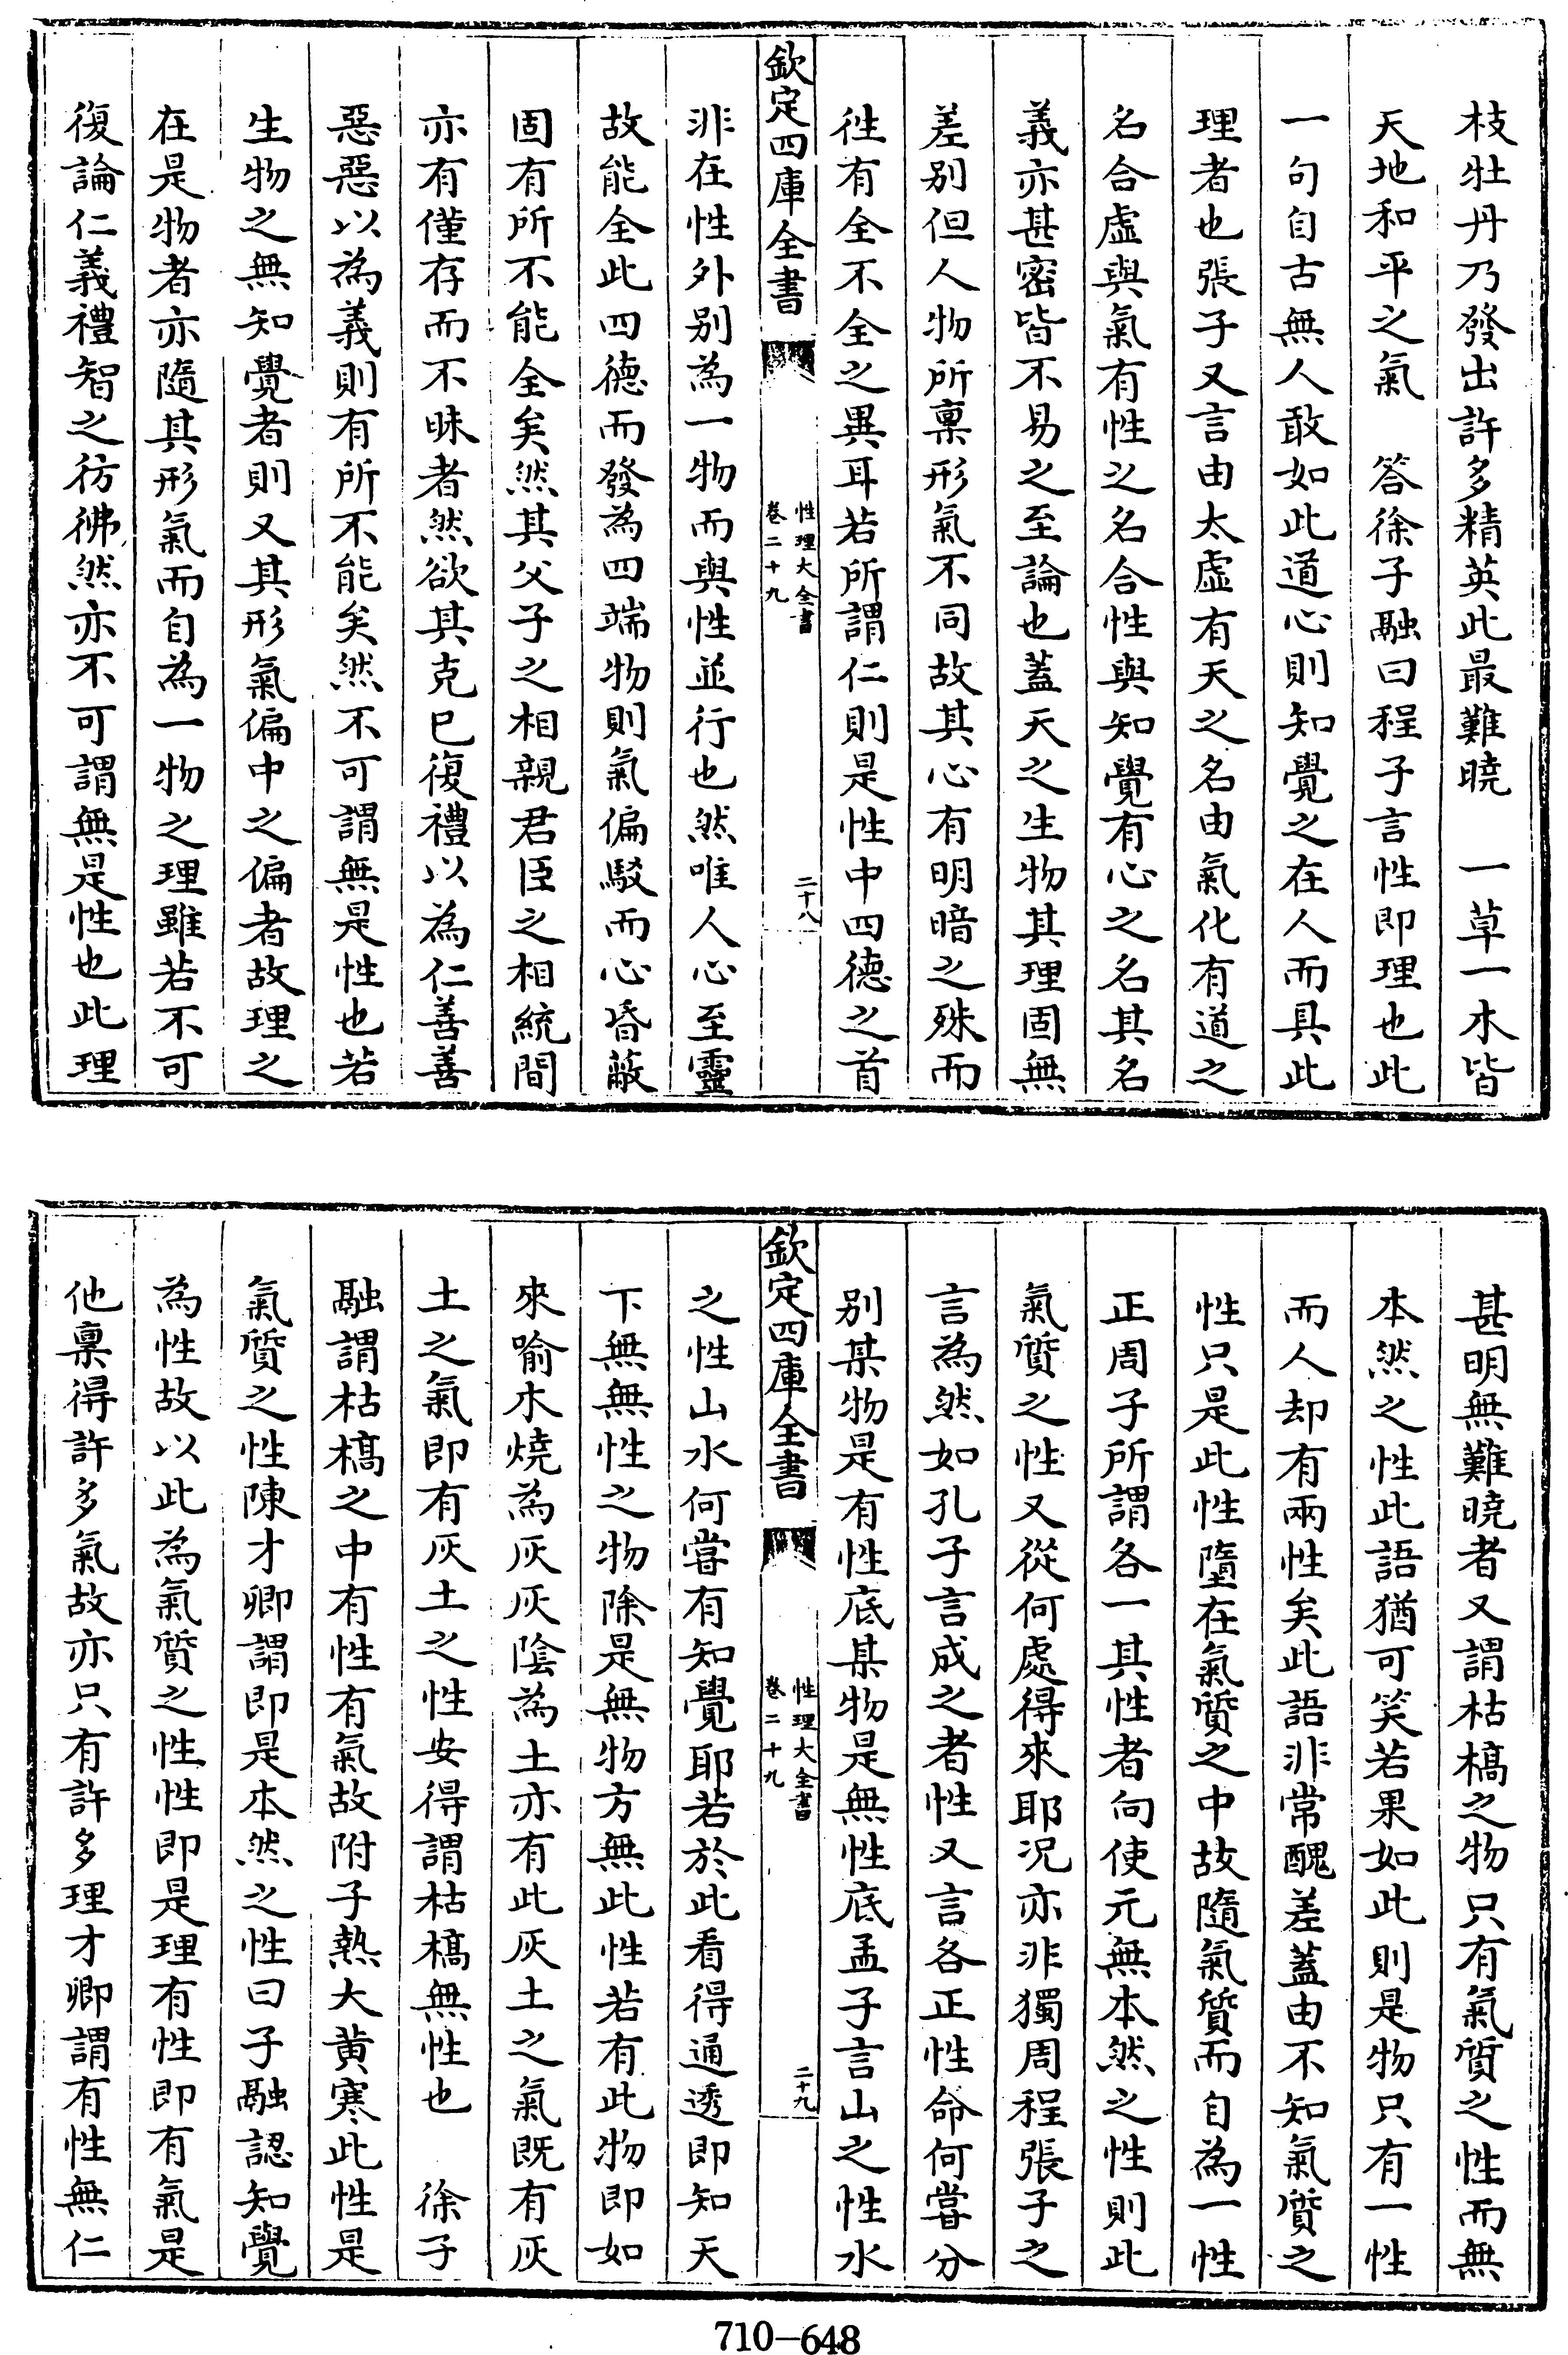 枝牡丹乃發出許多精英此最難曉　一草一木皆
天地和平之氣　答徐子融曰程子言性即理也此
一句自古無人敢如此道心則知覺之在人而具此
理者也張子又言由太虛有天之名由氣化有道之
名合虛與氣有性之名合性與知覺有心之名其名
義亦甚密皆不易之至論也蓋天之生物其理固無
差别但人物所稟形氣不同故其心有明暗之殊而
徃有全不全之異耳若所謂仁則是性中四德之首
欽定四庫全書
性理大全書
卷二十九
二十八
非在性外别為一物而與性並行也然唯人心至靈
故能全此四德而發為四端物則氣偏駁而心昏蔽
固有所不能全矣然其父子之相親君臣之相統間
亦有僅存而不昧者然欲其克已復禮以為仁善善
惡惡以為義則有所不能矣然不可謂無是性也若
生物之無知覺者則又其形氣偏中之偏者故理之
在是物者亦隨其形氣而自為一物之理雖若不可
復論仁義禮智之彷彿然亦不可謂無是性也此理
甚明無難曉者又謂枯槁之物只有氣質之性而無
本然之性此語猶可笑若果如此則是物只有一性
而人却有兩性矣此語非常醜差蓋由不知氣質之
性只是此性墮在氣質之中故隨氣質而自為一性
正周子所謂各一其性者向使元無本然之性則此
氣質之性又從何處得來耶况亦非獨周程張子之
言為然如孔子言成之者性又言各正性命何嘗分
别某物是有性底某物是無性底孟子言山之性水
欽定四庫全書
性理大全書
卷二十九
二十九
之性山水何嘗有知覺耶若於此看得通透即知天
下無無性之物除是無物方無此性若有此物即如
來喻木燒為灰灰陰為土亦有此灰土之氣既有灰
土之氣即有灰土之性安得謂枯槁無性也　徐子
融謂枯槁之中有性有氣故附子熱大黄寒此性是
氣質之性陳才卿謂即是本然之性曰子融認知覺
為性故以此為氣質之性性即是理有性即有氣是
他稟得許多氣故亦只有許多理才卿謂有性無仁
710-648